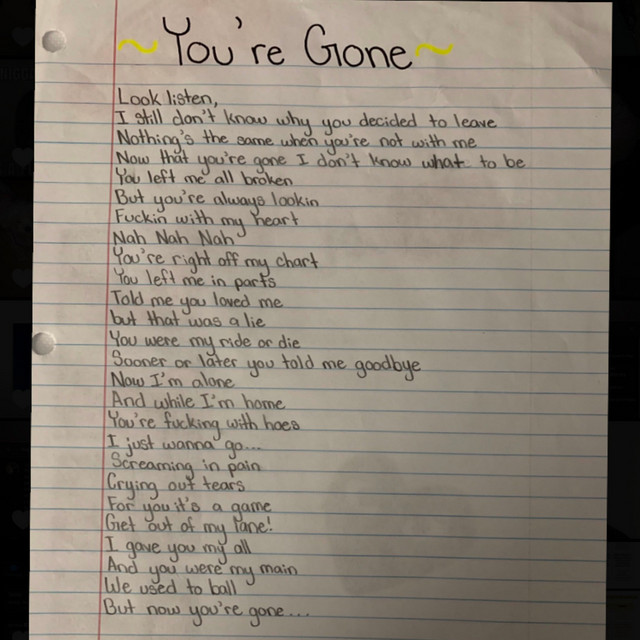 ~You're Gone~
Look listen,
I still don't know why you decided to leave
Nothing's the same when you're not with me
Now that you're gone I don't know what to be
You left me all broken
But you're always lookin
Fuckin with my heart
Nah Nah Nah
You're right off my chart
You left me in parts
Told me you loved me
but that was a lie
You were my ride or die
Sooner or later you told me goodbye
Now I'm alone
And while I'm home
You're fucking with hoes
I just wanna go...
Screaming in pain
Crying out tears
For you it's a game
Get out of my lane!
I gave you my all
And you were my main
We used to ball
But now you're gone...